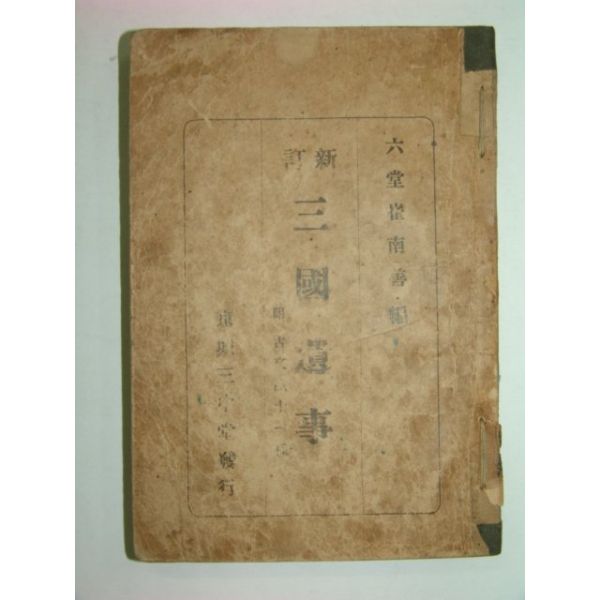 六堂崔南善編
新訂
三國遺事
附 古文
三中堂發行